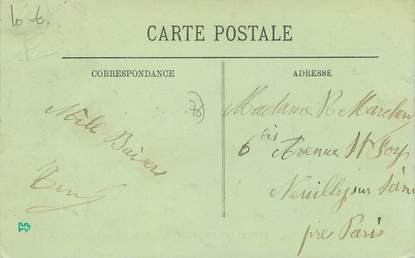 CARTE POSTALE
CORRESPONDANCE
ADRESSE
Mille Baisers
Madame R
6 bis Avenue St Foy
Neuilly sur Seine
pre Paris